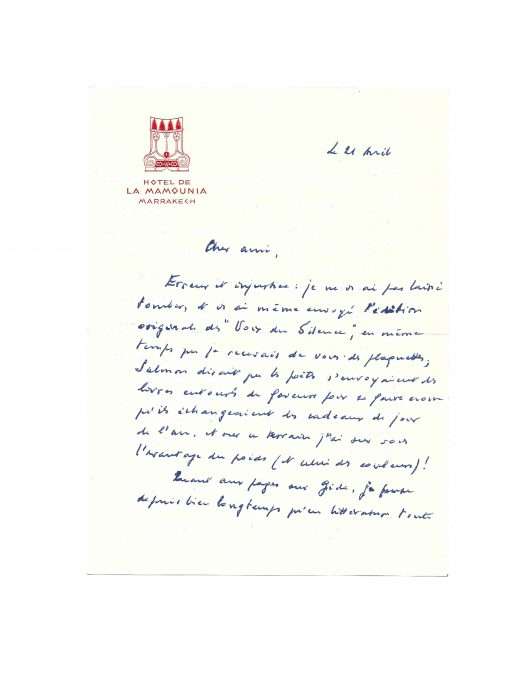 HOTEL DE
LA MAMOUNIA
MARRAKECH
Le 21 Avril
Cher ami,
Erreur et injustice : je ne vs ai pas laissé
tomber, et vs ai même envoyé l'édition
originale des "Voix du Silence", en même
temps que je recevais de vous des plaquettes,
Salmon disant que les poètes s'envoyaient des
livres entourés de faveurs pour se faire croire
qu'ils échangeaient des cadeaux de jour
de l'an, et sur ce terrain j'ai sur vous
l'avantage du poids (et celui des couleurs) !
Quant aux pages sur Gide, je pense
depuis bien longtemps qu'en littérature toute